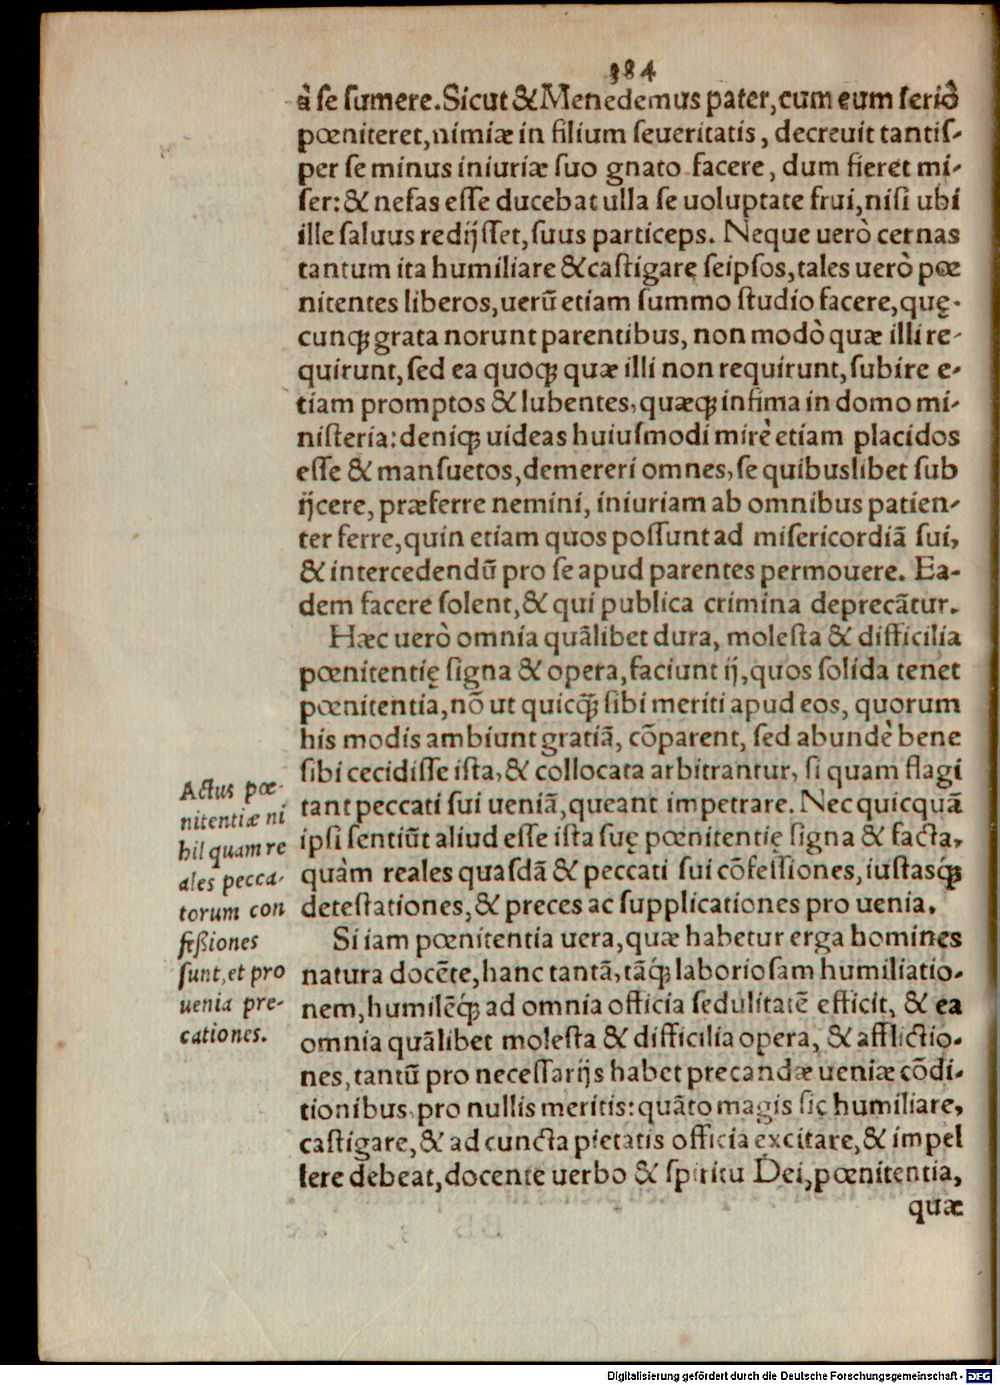 384
à se sumere. Sicut & Menedemus pater, cum eum seriò
pœniteret, nimiæ in filium seueritatis, decreuit tantis-
per se minus iniuriæ suo gnato facere, dum fieret mi-
ser: & nefas esse ducebat ulla se uoluptate frui, nisi ubi
ille saluus redijsset, suus particeps. Neque uerò cernas
tantum ita humiliare & castigare seipsos, tales uerò pœ
nitentes liberos, uerũ etiam summo studio facere, quę-
cunqꝫ grata norunt parentibus, non modò quæ illi re-
quirunt, sed ea quoqꝫ quæ illi non requirunt, subire e-
tiam promptos & lubentes, quæqꝫ infima in domo mi-
nisteria: deniqꝫ uideas huiusmodi mirè etiam placidos
esse & mansuetos, demereri omnes, se quibuslibet sub
ijcere, præferre nemini, iniuriam ab omnibus patien-
ter ferre, quin etiam quos possunt ad misericordiã sui,
& intercedendũ pro se apud parentes permouere. Ea-
dem facere solent, & qui publica crimina deprecãtur.
Hæc uerò omnia quãlibet dura, molesta & difficilia
pœnitentię signa & opera, faciunt ij, quos solida tenet
pœnitentia, nõ ut quicq̃ꝫ sibi meriti apud eos, quorum
his modis ambiunt gratiã, cõparent, sed abundè bene
sibi cecidisse ista, & collocata arbitrantur, si quam flagi
tant peccati sui ueniã, queant impetrare. Nec quicquã
ipsi sentiũt aliud esse ista suę pœnitentię signa & facta,
quàm reales quasdã & peccati sui cõfessiones, iustasq́ꝫ
detestationes, & preces ac supplicationes pro uenia.
Actus pœ-
nitentiæ ni
hil quam re
ales pecca-
torum con
feßiones
sunt, et pro
uenia pre-
cationes.
Si iam pœnitentia uera, quæ habetur erga homines
natura docẽte, hanc tantã, tãq́ꝫ laboriosam humiliatio-
nem, humilẽq́ꝫ ad omnia officia sedulitatẽ efficit, & ea
omnia quãlibet molesta & difficilia opera, & afflictio-
nes, tantũ pro necessarijs habet precandæ ueniæ cõdi-
tionibus, pro nullis meritis: quãto magis sic humiliare,
castigare, & ad cuncta pietatis officia excitare, & impel
lere debeat, docente uerbo & spiritu Dei, pœnitentia,
quæ
Digitalisierung gefördert durch die Deutsche Forschungsgemeinschaft - DFG